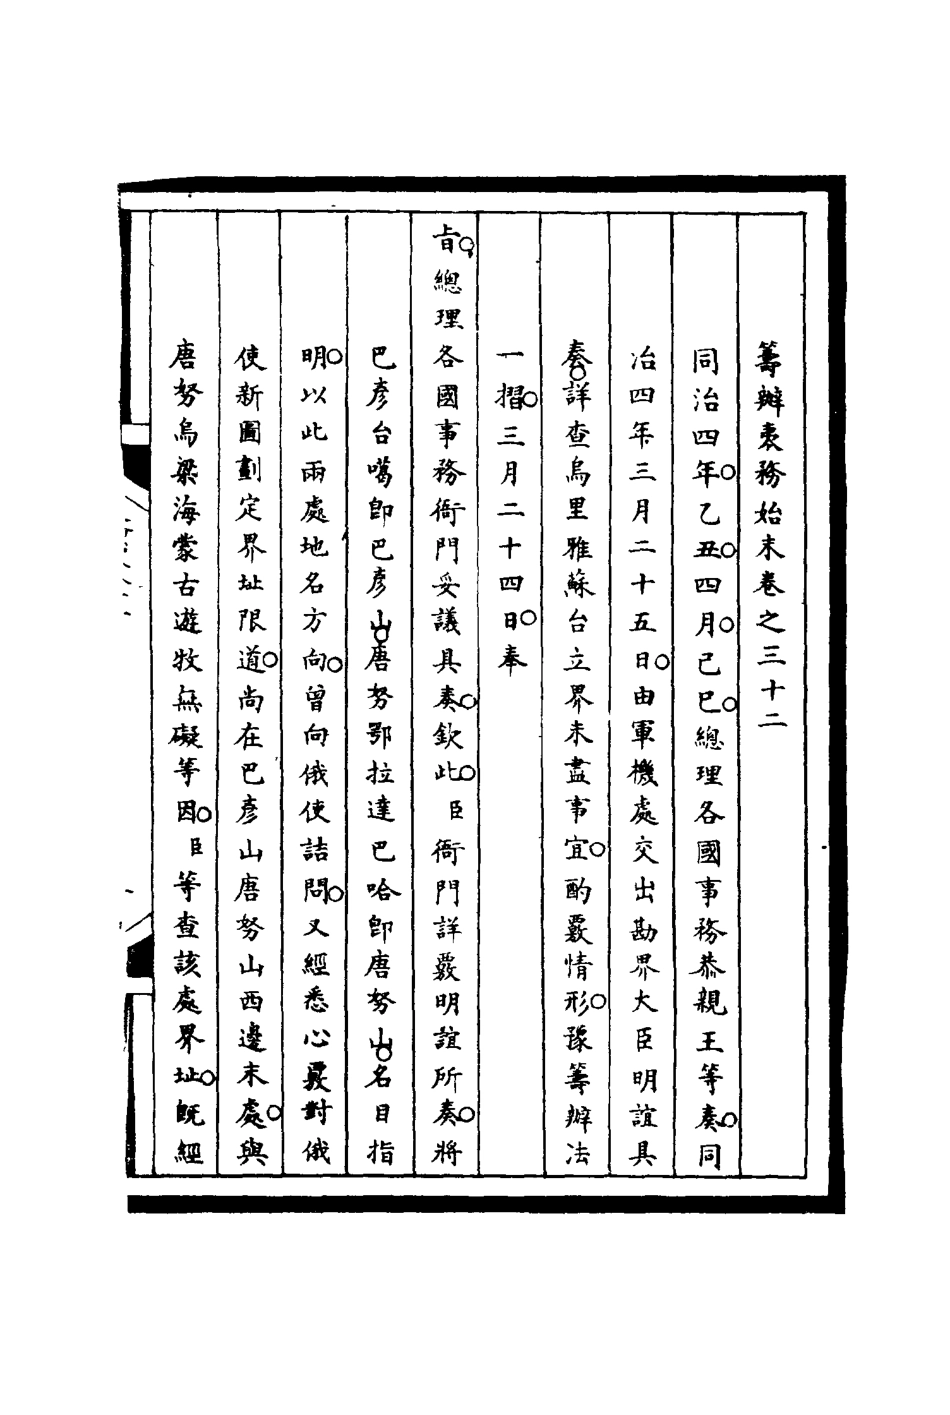 籌辦夷務始末卷之三十二
同治四年。乙丑。四月。己巳。總理各國事務恭親王等奏。同
治四年三月二十五日。由軍機處交出勘界大臣明誼具
奏。詳查烏里雅蘇台立界未盡事宜。酌覈情形。豫籌辦法
一摺。三月二十四日。奉
旨。總理各國事務衙門妥議具奏。欽此。臣衙門詳覈明誼所奏。將
巴彥台噶卽巴彥山。唐努鄂拉達巴哈卽唐努山。名目指
明。以此兩處地名方向。曾向俄使詰問。又經悉心覈對俄
使新圖劃定界址限道。尚在巴彥山唐努山西邊末處。與
唐努烏梁海蒙古遊牧無礙等因。臣等查該處界址。旣經